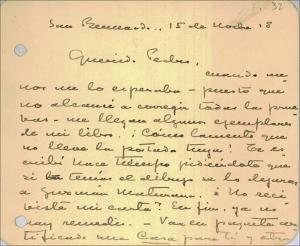 32
San Bernardo... 15 de Nov
Querido Pedro,
cuando me
nos me lo esperaba - puesto que
no alcancé a corregir todas las prue
bas - me llegan algunos ejemplares
de mi libro. ¡Cómo lamento que
no lleve la portada tuya! Te es
cribí hace tiempo pidiéndote que
si tenías el dibujo se lo dejaras
a Guzmán Maturana. ¿No reci
biste mi carta? En fin, ya no
hay remedio. Va en paquete cer
tificado una Casa para ti y otra